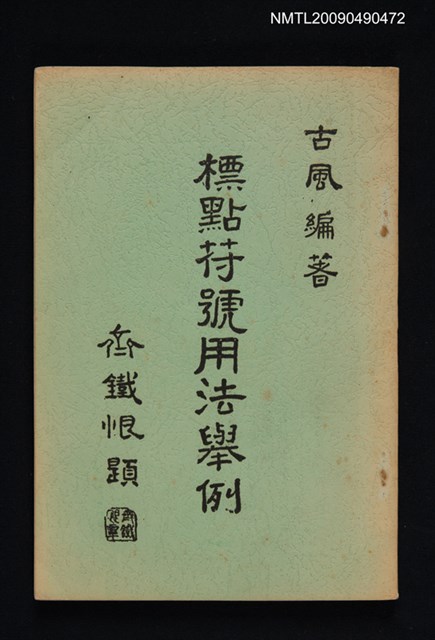 NMTL20090490472
古風編著
標點符號用法舉例
齊鐵恨題